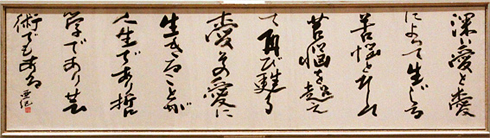 深い愛と愛
によって生じる
苦悩
苦悩を超え
て再び甦る
愛その愛に
生きることが
人生であり哲
学であり芸
術でもある